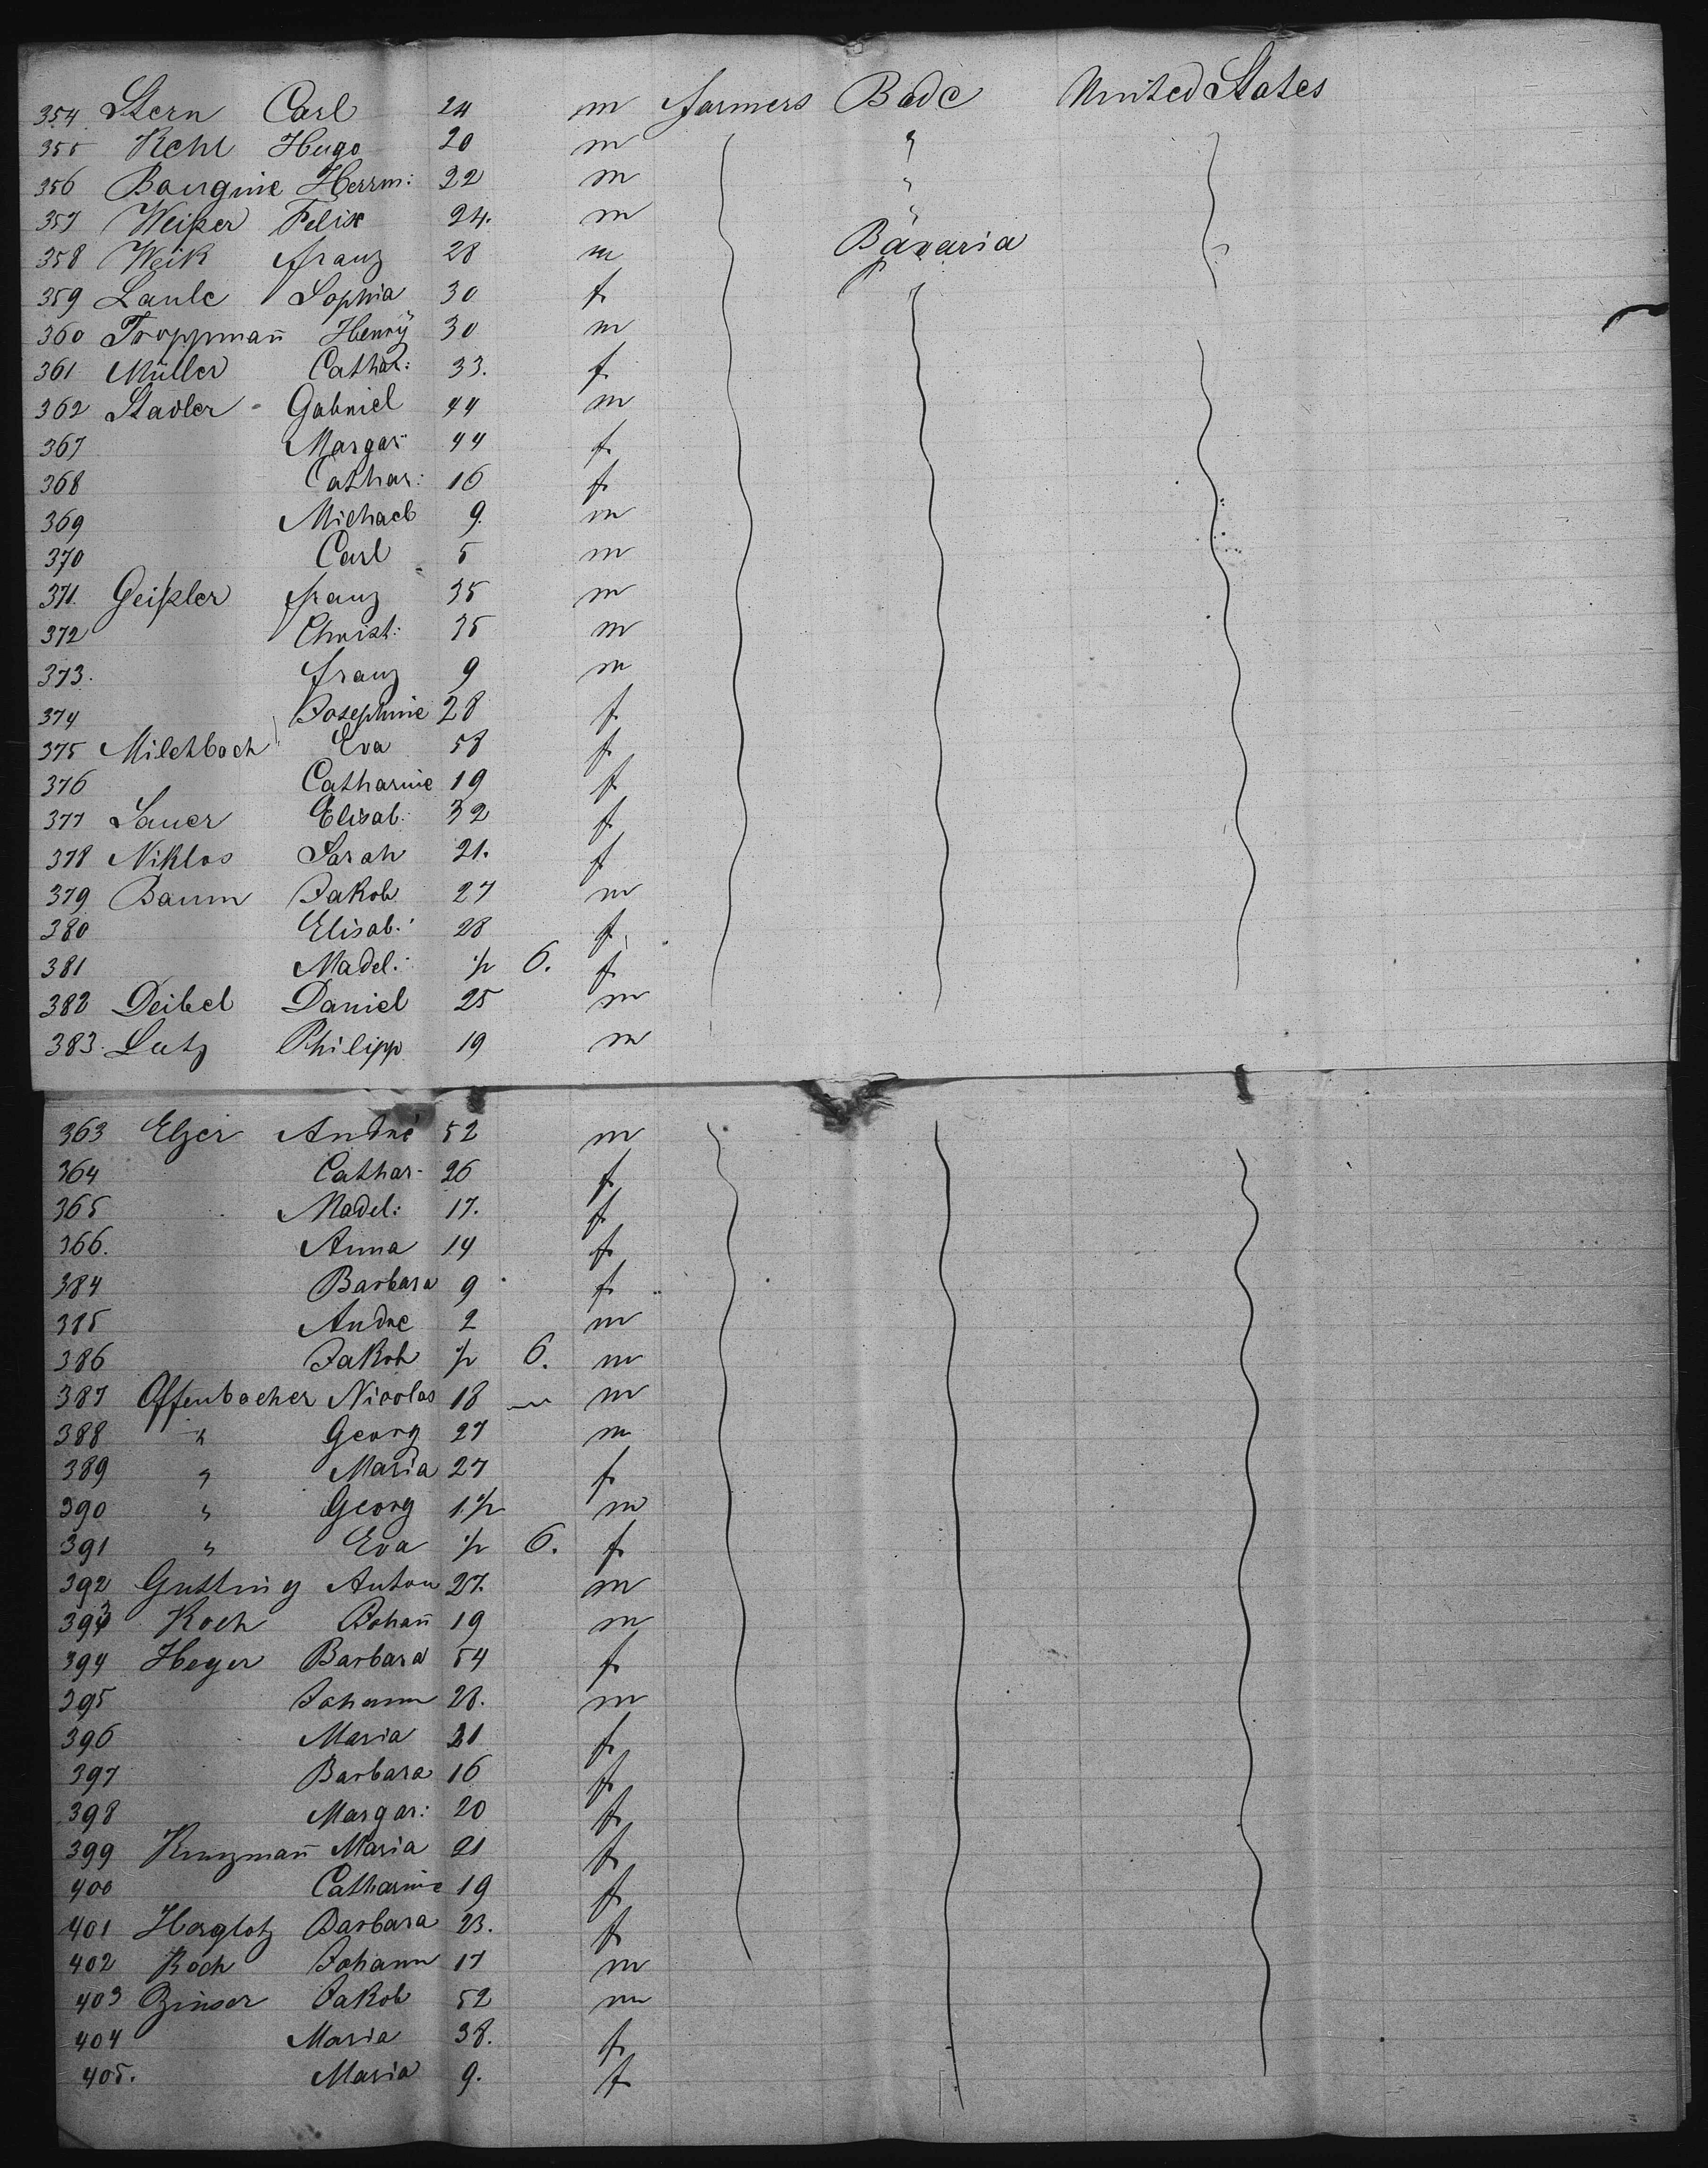 354 Stern Carl 24 m farmers Bade United States
355 Kehl Hugo 20 m "
356 Bourgine Herrm: 22 m "
357 Weißer Felix 24. m "
358 Weik franz 28 m Bavaria
359 Laule Sophia 30 f
360 Troppmañ Henry 30 m
361 Müller Cathar: 33. f
362 Stadler Gabriel 44 m
367 Margar: 44 f
368 Cathar: 16 f
369 Michael 9. m
370 Carl 5 m
371. Geißler franz 35 m
372 Christ: 35 m
373. franz 9 m
374 Josephine 28 f
375 Milchbach Eva 58 f
376 Catharine 19 f
377 Sauer Elisab: 32 f
378 Niklos Sarah 21. f
379 Baum Jakob 27 m
380 Elisab: 28 f
381 Madel: 1/2 6. f
382 Deibel Daniel 25 m
383. Lutz Philipp 19 m
363 Elzer André 52 m
364 Cathar: 26 f
365 Madel: 17. f
366. Anna 14 f
384 Barbara 9 f
385 Andre 2 m
386 Jakob 1/2 6. m
387 Offenbacher Nicolas 18 m
388 " Georg 27 m
389 " Maria 27 f
390 " Georg 1 1/2 m
391 " Eva 1/2 6. f
392 Gutting Anton 27. m
393 Koch Johañ 19 m
394 Heger Barbara 54 f
395 Johann 28. m
396 Maria 21 f
397 Barbara 16 f
398 Margar: 20 f
399 Kunzmañ Maria 21 f
400 Catharine 19 f
401 Herglotz Barbara 23. f
402 Koch Johann 17 m
403 Zinser Jakob 52 m
404 Maria 38. f
405. Maria 9. f